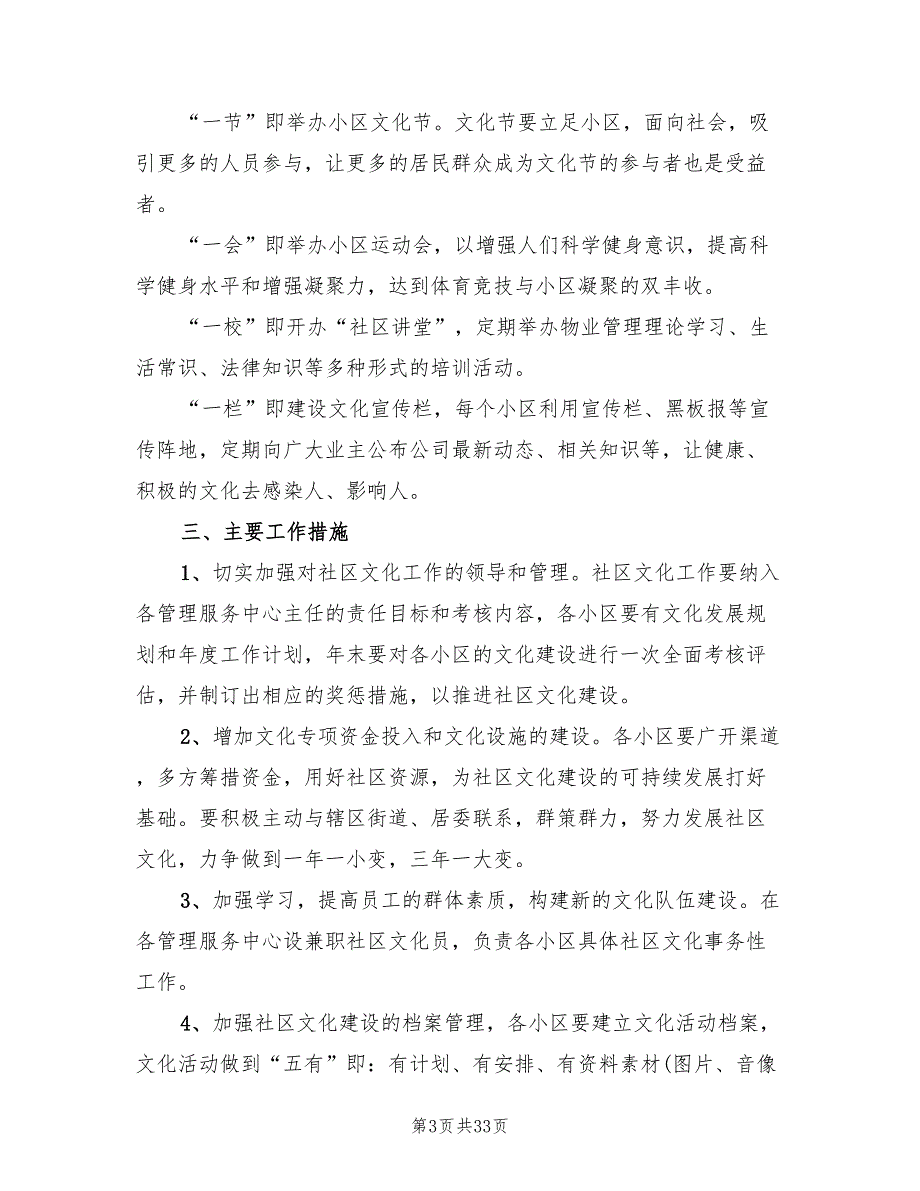 “一节”即举办小区文化节。文化节要立足小区，面向社会，吸
引更多的人员参与，让更多的居民群众成为文化节的参与者也是受益
者。
“一会”即举办小区运动会，以增强人们科学健身意识，提高科
学健身水平和增强凝聚力，达到体育竞技与小区凝聚的双丰收。
“一校”即开办“社区讲堂”，定期举办物业管理理论学习、生
活常识、法律知识等多种形式的培训活动。
“一栏”即建设文化宣传栏，每个小区利用宣传栏、黑板报等宣
传阵地，定期向广大业主公布公司最新动态、相关知识等，让健康、
积极的文化去感染人、影响人。
三、主要工作措施
1、切实加强对社区文化工作的领导和管理。社区文化工作要纳入
各管理服务中心主任的责任目标和考核内容，各小区要有文化发展规
划和年度工作计划，年末要对各小区的文化建设进行一次全面考核评
估，并制订出相应的奖惩措施，以推进社区文化建设。
2、增加文化专项资金投入和文化设施的建设。各小区要广开渠道
，多方筹措资金，用好社区资源，为社区文化建设的可持续发展打好
基础。要积极主动与辖区街道、居委联系，群策群力，努力发展社区
文化，力争做到一年一小变，三年一大变。
3、加强学习，提高员工的群体素质，构建新的文化队伍建设。在
各管理服务中心设兼职社区文化员，负责各小区具体社区文化事务性
工作。
4、加强社区文化建设的档案管理，各小区要建立文化活动档案，
文化活动做到“五有”即：有计划、有安排、有资料素材(图片、音像
第3页共33页